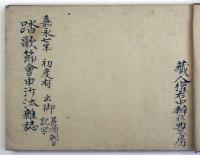 藏人權右中辨豐房
嘉永七年 初度有 出御
踏歌節會申沙汰雜誌